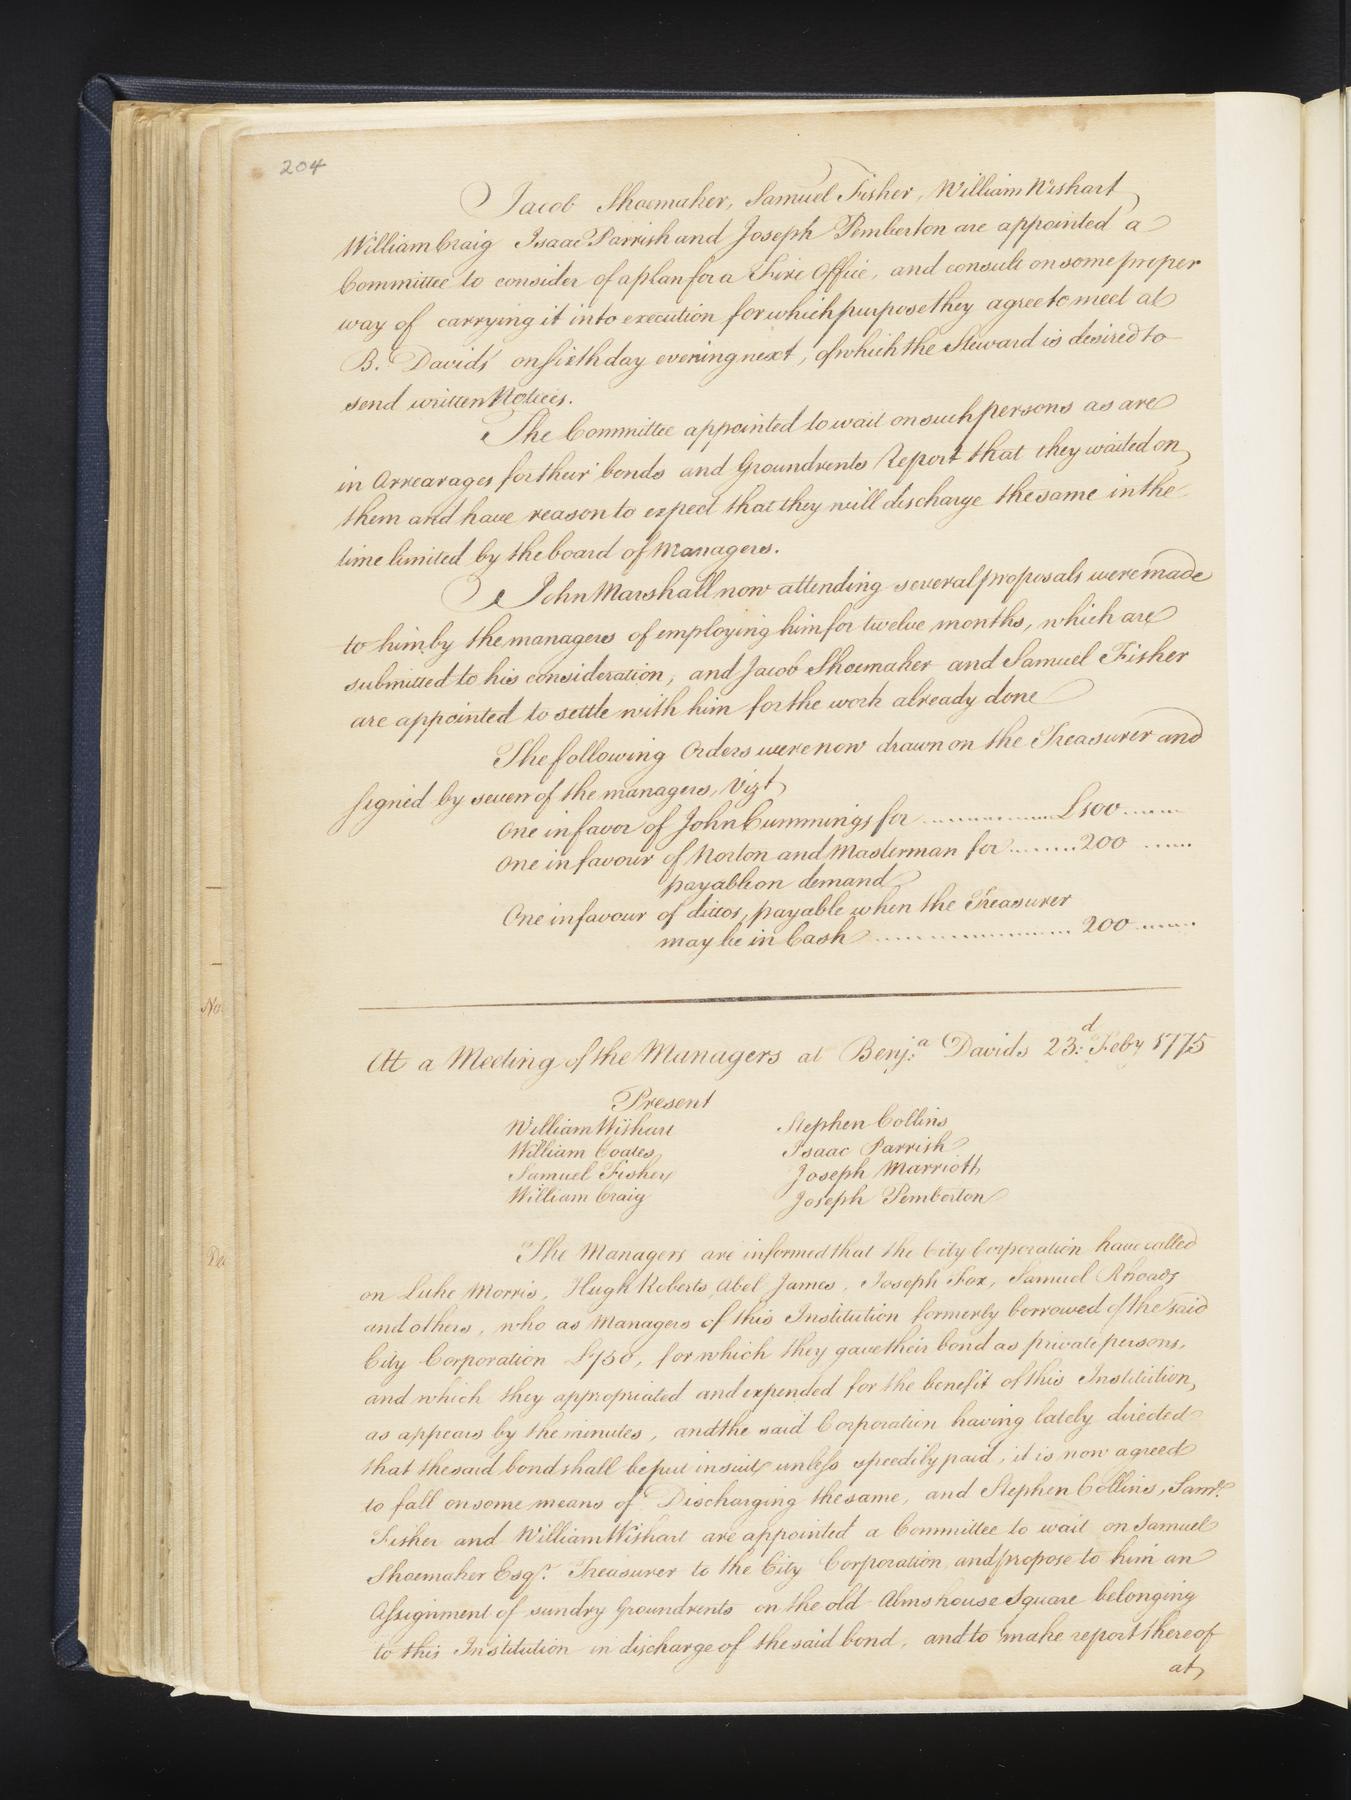 204
Jacob Shoemaker, Samuel Fisher, William Wishart
William Craig Isaac Parrish and Joseph Pemberton are appointed a
Committee to consider of a plan for a Fire Office, and consult on some proper
way of carrying it into execution for which purpose they agree to meet at
B. Davids' on sixth day evening next, of which the Steward is desired to
send written Notices.
The Committee appointed to wait on such persons as are
in Arrearages for their bonds and Groundrents Report that they waited on
them and have reason to expect that they will discharge the same in the
time limited by the board of Managers.
John Marshall now attending several proposals were made
to him by the managers of employing him for twelve months, which are
submitted to his consideration, and Jacob Shoemaker and Samuel Fisher
are appointed to settle with him for the work already done
The following Orders were now drawn on the Treasurer and
signed by seven of the managers, Vizt
One in favor of John Cummings for ............ £100 ......
One in favour of Norton and Masterman for ........ 200 ......
payable on demand
One in favour of dittos, payable when the Treasurer
may be in Cash .................. 200 ......
At a Meeting of the Managers at Benj:a Davids 23:d Feby 1775
Present
William Wishart Stephen Collins
William Coates Isaac Parrish
Samuel Fisher Joseph Marriott
William Craig Joseph Pemberton
The Managers are informed that the City Corporation have called
on Luke Morris, Hugh Roberts, Abel James, Joseph Fox, Samuel Rhoads
and others, who as Managers of this Institution formerly borrowed of the said
City Corporation £750, for which they gave their bond as private persons,
and which they appropriated and expended for the benefit of this Institution,
as appears by the minutes, and the said Corporation having lately directed
that the said bond shall be put in suit unless speedily paid, it is now agreed
to fall on some means of Discharging the same, and Stephen Collins, Saml.
Fisher and William Wishart are appointed a Committee to wait on Samuel
Shoemaker Esqr. Treasurer to the City Corporation, and propose to him an
Assignment of sundry Groundrents on the old Almshouse Square belonging
to this Institution in discharge of the said bond, and to make report thereof
at
No